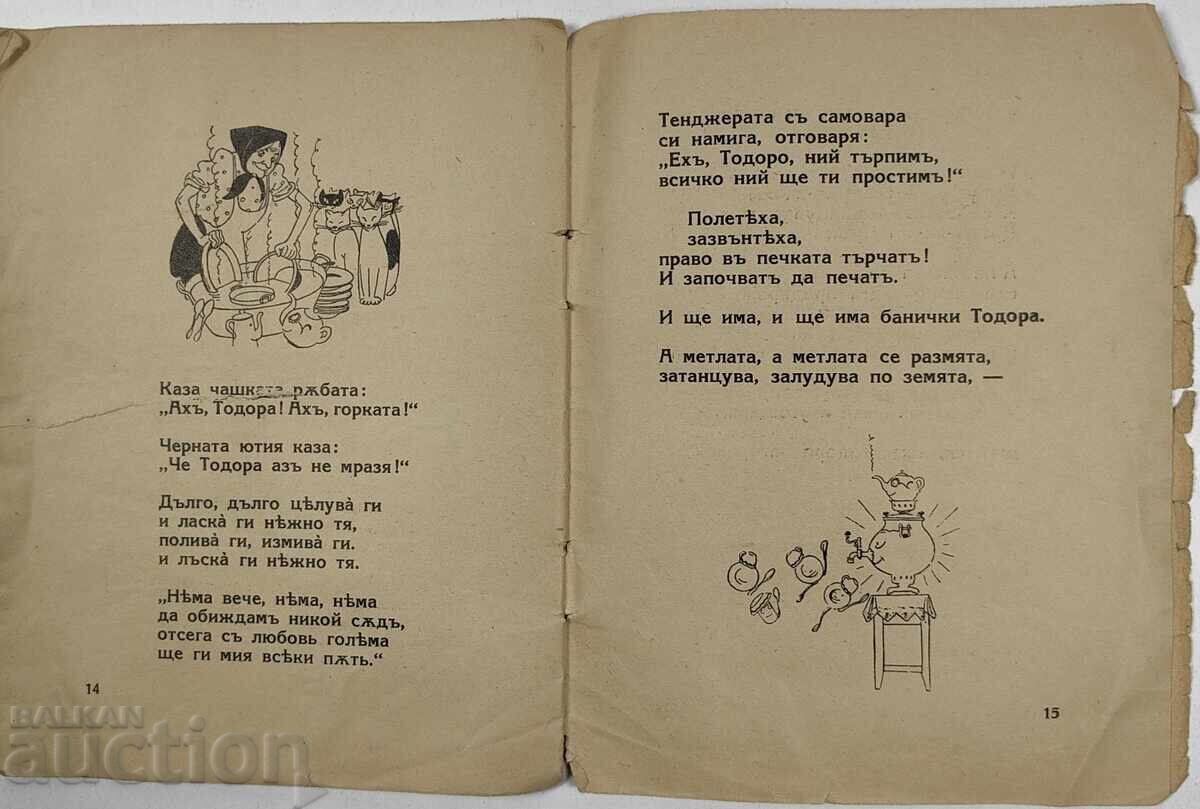 Каза чашката рѫбата:
„Ахъ, Тодора! Ахъ, горката!“
Черната ютия каза:
„Че Тодора азъ не мразя!“
Дълго, дълго цѣлува̀ ги
и ласка̀ ги нѣжно тя,
полива̀ ги, измива̀ ги.
и лъска̀ ги нѣжно тя.
„Нѣма вече, нѣма, нѣма
да обиждамъ никой сѫдъ,
отсега съ любовь голѣма
ще ги мия всѣки пѫть.“
14
Тенджерата съ самовара
си намига, отговаря:
„Ехъ, Тодоро, ний търпимъ,
всичко ний ще ти простимъ!“
Полетѣха,
зазвънтѣха,
право въ печката търчатъ!
И започватъ да печатъ.
И ще има, и ще има банички Тодора.
А метлата, а метлата се размята,
затанцува, залудува по земята, —
15
BALKAN
auction